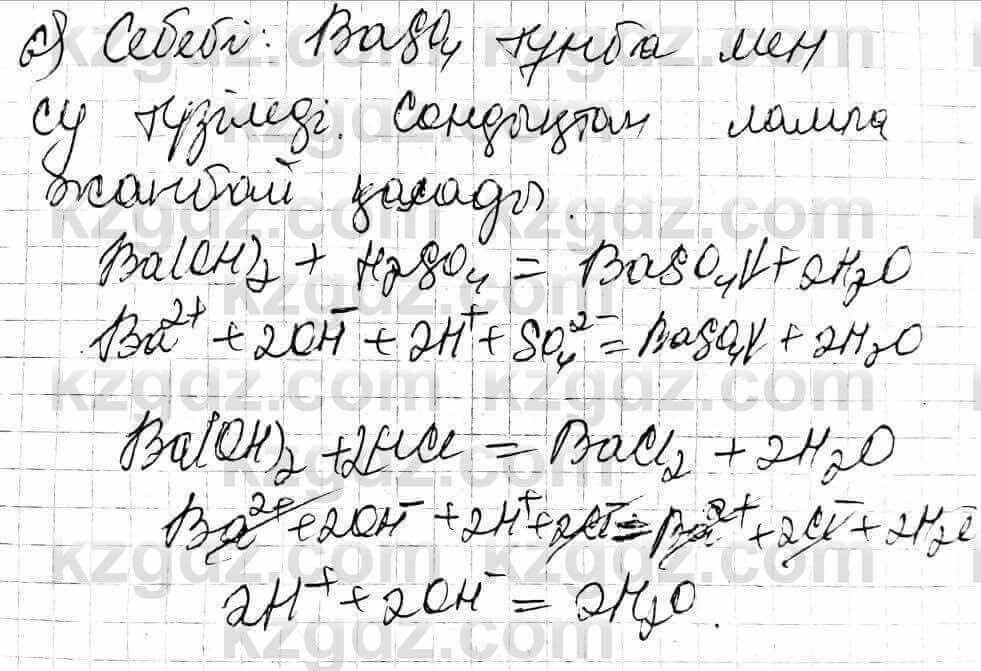 б) Себебі: BaSO₄ тұнба мен
су түзіледі. Сондықтан лампа
жанбай қалады.
Ba(OH)₂ + H₂SO₄ = BaSO₄↓ + 2H₂O
Ba²⁺ + 2OH⁻ + 2H⁺ + SO₄²⁻ = BaSO₄↓ + 2H₂O
Ba(OH)₂ + 2HCl = BaCl₂ + 2H₂O
Ba²⁺ + 2OH⁻ + 2H⁺ + 2Cl⁻ = Ba²⁺ + 2Cl⁻ + 2H₂O
2H⁺ + 2OH⁻ = 2H₂O.